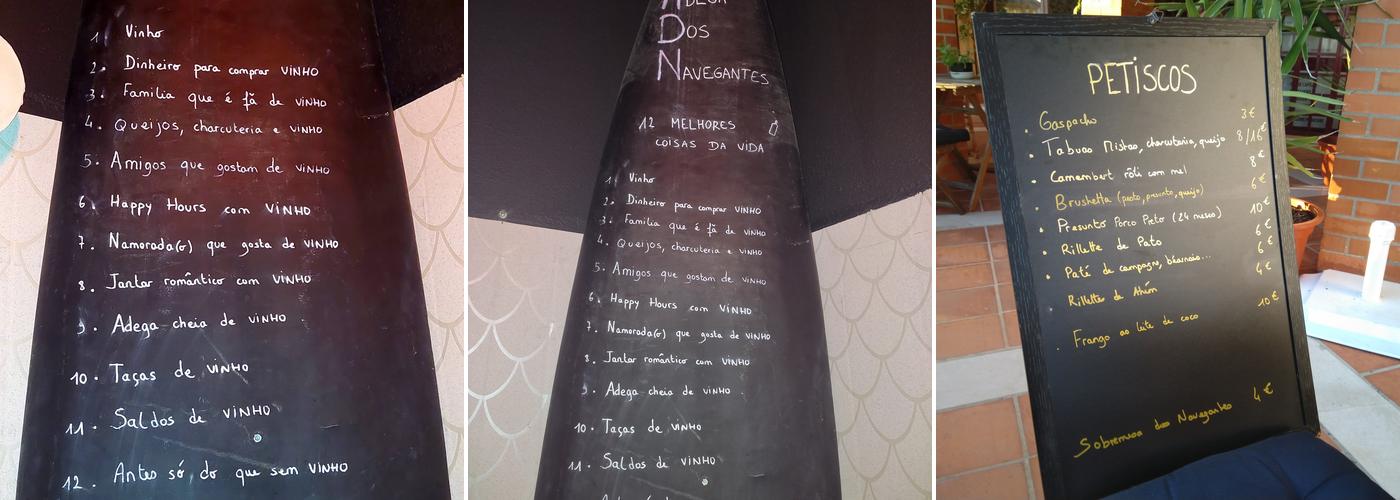 1. Vinho
2. Dinheiro para comprar VINHO
3. Familia que é fã de VINHO
4. Queijos, charcuteria e VINHO
5. Amigos que gostam de VINHO
6. Happy Hours com VINHO
7. Namorada(o) que gosta de VINHO
8. Jantar romântico com VINHO
9. Adega cheia de VINHO
10. Taças de VINHO
11. Saldos de VINHO
12. Antes só, do que sem VINHO
ADEGA
DOS
NAVEGANTES
12 MELHORES
COISAS DA VIDA
1. Vinho
2. Dinheiro para comprar VINHO
3. Familia que é fã de VINHO
4. Queijos, charcuteria e VINHO
5. Amigos que gostam de VINHO
6. Happy Hours com VINHO
7. Namorada(o) que gosta de VINHO
8. Jantar romântico com VINHO
9. Adega cheia de VINHO
10. Taças de VINHO
11. Saldos de VINHO
PETISCOS
. Gaspacho 3€
. Tabuas Mistas, charcutaria, queijo 8/16€
. Camembert rôti com mel 8€
. Brushetta (pesto, presunto, queijo) 6€
. Presunto Porco Preto (24 meses) 10€
. Rillette de Pato 6€
. Paté de campagne, béarnais... 6€
. Rillettes de Atum 4€
. Frango ao leite de coco 10€
Sobremesa dos Navegantes 4€